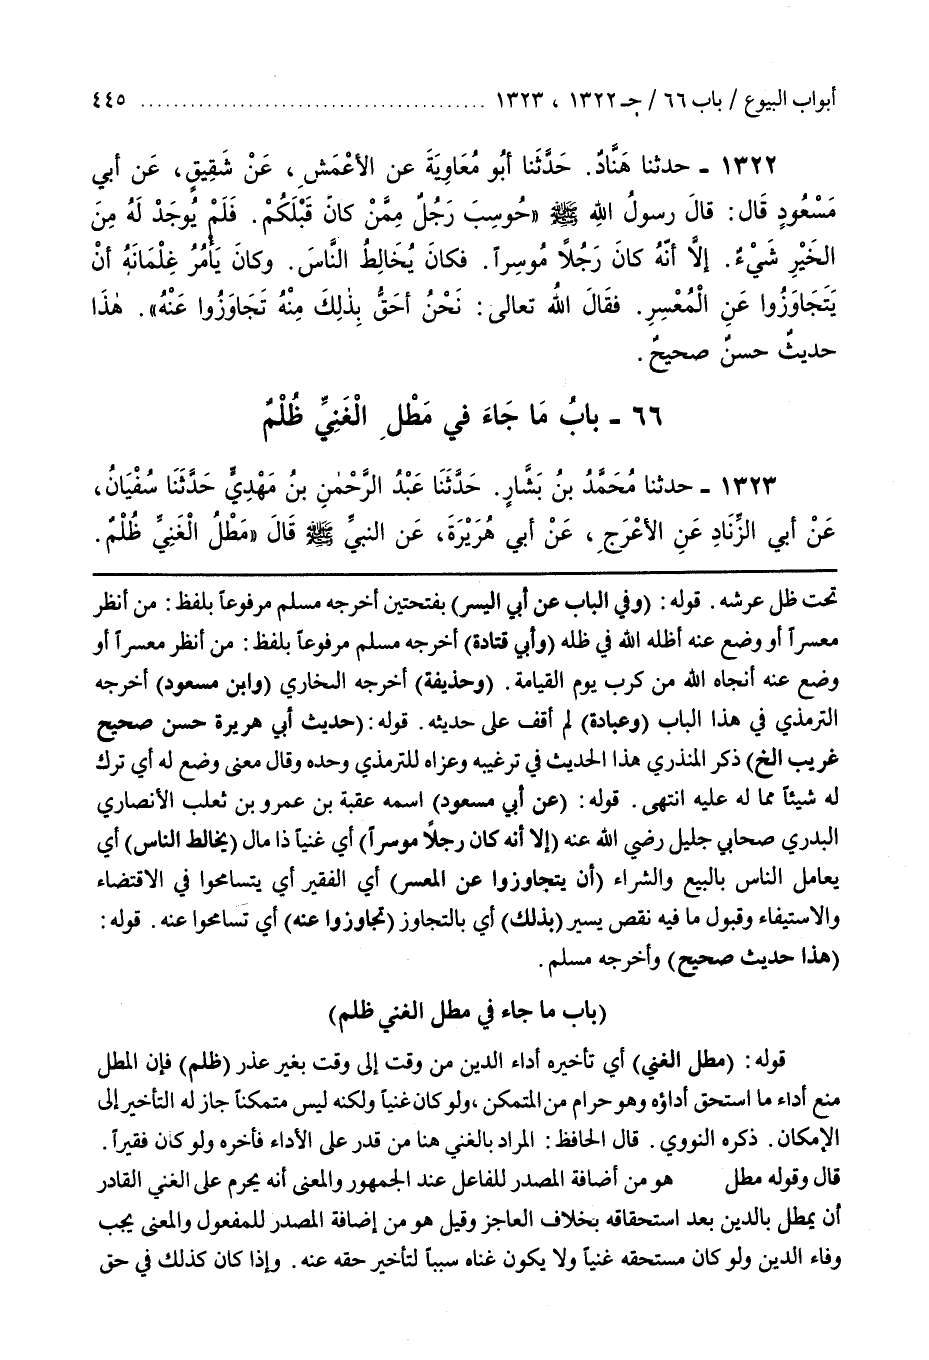 أبواب البيوع / باب ٦٦ / جـ ١٣٢٢ ، ١٣٢٣ ........................................ ٤٤٥
١٣٢٢ - حدثنا هَنَّادٌ. حَدَّثَنَا أبُو مُعَاوِيَةَ عن الأعْمَشِ، عَنْ شَقِيقٍ، عَن أبي
مَسْعُودٍ قَال: قالَ رسولُ اللهِ ﷺ «حُوسِبَ رَجُلٌ مِمَّنْ كانَ قَبْلَكُمْ. فَلَمْ يُوجَدْ لَهُ مِنَ
الخَيْرِ شَيْءٌ. إلَّا أنّهُ كانَ رَجُلًا مُوسِراً. فكانَ يُخَالِطُ النَّاسَ. وكانَ يَأْمُرُ غِلْمَانَهُ أنْ
يَتَجَاوَزُوا عَنِ الْمُعْسِرِ. فقَالَ اللهُ تعالى: نَحْنُ أحَقُّ بِذٰلِكَ مِنْهُ تَجَاوَزُوا عَنْهُ». هٰذَا
حديثٌ حسنٌ صحيحٌ.
٦٦ - بابُ مَا جَاءَ في مَطْلِ الْغَنِيِّ ظُلْمٌ
١٣٢٣ - حدثنا مُحَمَّدُ بنُ بَشَّارٍ. حَدَّثَنَا عَبْدُ الرَّحْمٰنِ بنُ مَهْدِيٍّ حَدَّثَنَا سُفْيَانُ،
عَنْ أبي الزِّنَادِ عَنِ الأعْرَجِ، عَنْ أبي هُرَيْرَةَ، عَن النبيِّ ﷺ قَالَ «مَطْلُ الْغَنِيِّ ظُلْمٌ.
تحت ظل عرشه. قوله: (وفي الباب عن أبي اليسر) بفتحتين أخرجه مسلم مرفوعاً بلفظ: من أنظر
معسراً أو وضع عنه أظله الله في ظله (وأبي قتادة) أخرجه مسلم مرفوعاً بلفظ: من أنظر معسراً أو
وضع عنه أنجاه الله من كرب يوم القيامة. (وحذيفة) أخرجه البخاري (وابن مسعود) أخرجه
الترمذي في هذا الباب (وعبادة) لم أقف على حديثه. قوله: (حديث أبي هريرة حسن صحيح
غريب الخ) ذكر المنذري هذا الحديث في ترغيبه وعزاه للترمذي وحده وقال معنى وضع له أي ترك
له شيئاً مما له عليه انتهى. قوله: (عن أبي مسعود) اسمه عقبة بن عمرو بن ثعلب الأنصاري
البدري صحابي جليل رضي الله عنه (إلا أنه كان رجلاً موسراً) أي غنياً ذا مال (يخالط الناس) أي
يعامل الناس بالبيع والشراء (أن يتجاوزوا عن المعسر) أي الفقير أي يتسامحوا في الاقتضاء
والاستيفاء وقبول ما فيه نقص يسير (بذلك) أي بالتجاوز (تجاوزوا عنه) أي تسامحوا عنه. قوله:
(هذا حديث صحيح) وأخرجه مسلم.
(باب ما جاء في مطل الغني ظلم)
قوله: (مطل الغني) أي تأخيره أداء الدين من وقت إلى وقت بغير عذر (ظلم) فإن المطل
منع أداء ما استحق أداؤه وهو حرام من المتمكن، ولو كان غنياً ولكنه ليس متمكناً جاز له التأخير إلى
الإمكان. ذكره النووي. قال الحافظ: المراد بالغني هنا من قدر على الأداء فأخره ولو كان فقيراً.
قال وقوله مطل هو من أضافة المصدر للفاعل عند الجمهور والمعنى أنه يحرم على الغني القادر
أن يمطل بالدين بعد استحقاقه بخلاف العاجز وقيل هو من إضافة المصدر للمفعول والمعنى يجب
وفاء الدين ولو كان مستحقه غنياً ولا يكون غناه سبباً لتأخير حقه عنه. وإذا كان كذلك في حق